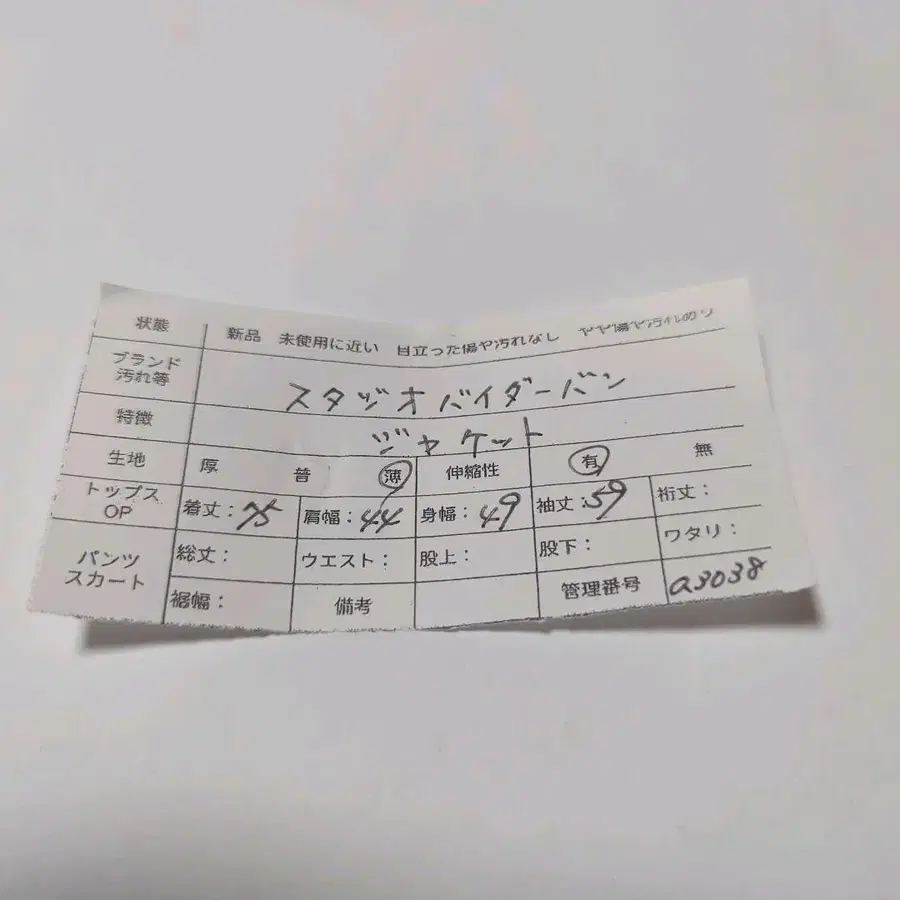 状態 新品 未使用に近い 目立った傷や汚れなし やや傷や汚れあり
ブランド
汚れ等 スタジオバイダーバン
特徴 ジャケット
生地 厚 普 薄 伸縮性 有 無
トップス
OP 着丈:75 肩幅:44 身幅:49 袖丈:59 裄丈:
パンツ
スカート 総丈: ウエスト: 股上: 股下: ワタリ:
裾幅: 備考 管理番号 a3038